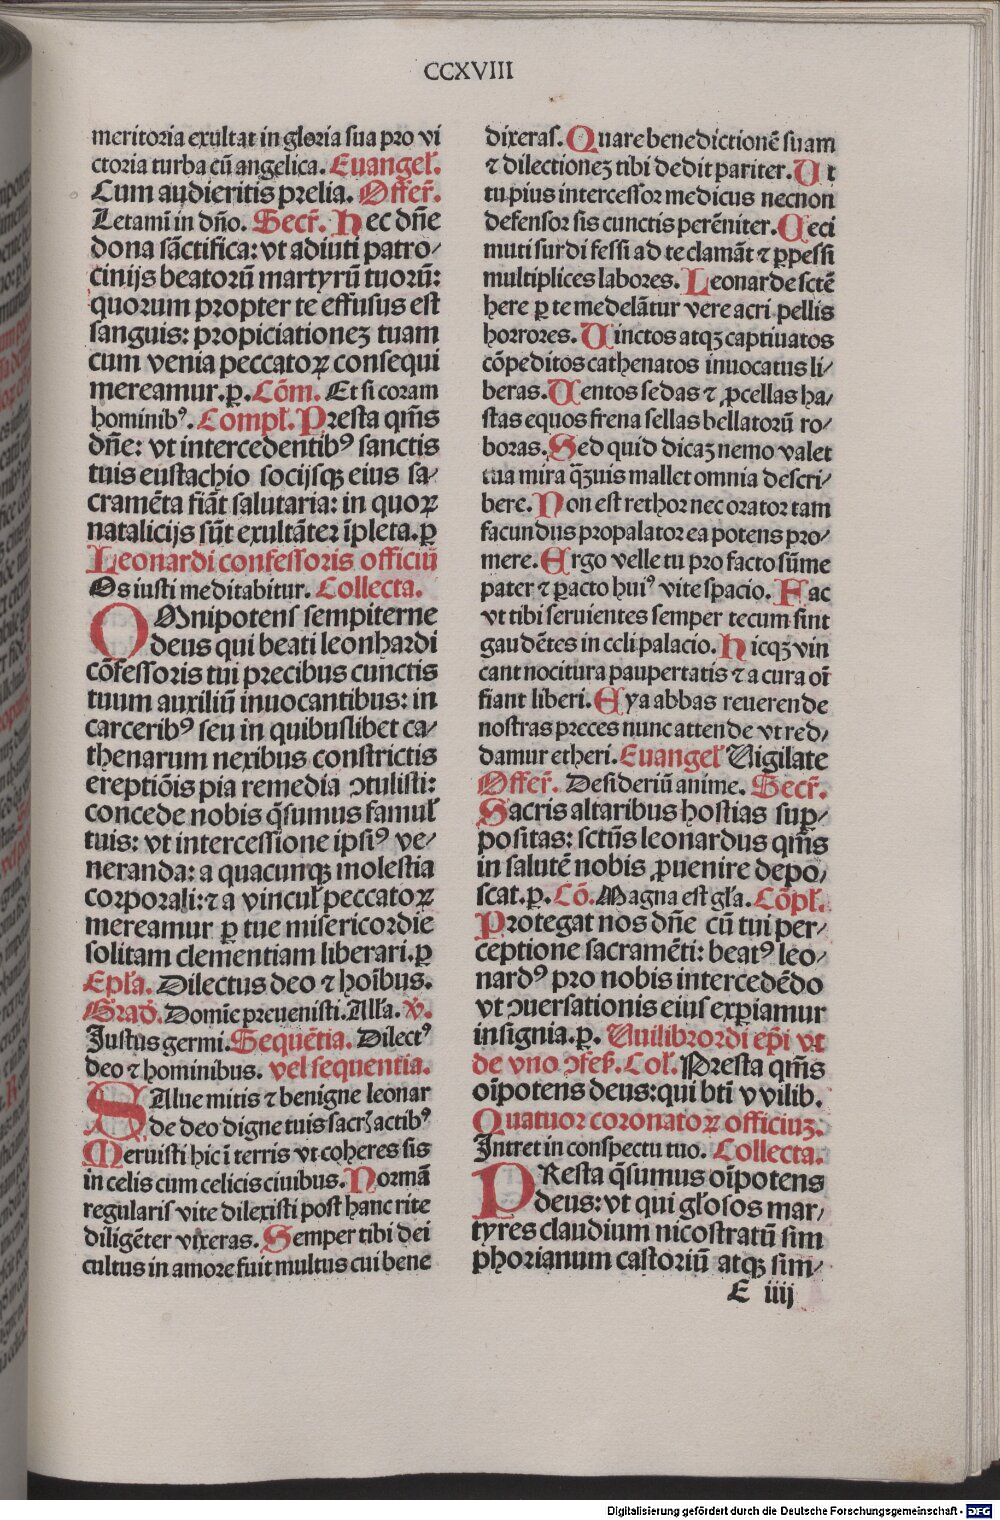 CCXVIII
meritoria exultat in gloria sua pro vi
ctoria turba cū angelica. Euangeł.
Cum audieritis prelia. Offer̄.
Letamī in dn̄o. Secr̄. Hec dn̄e
dona sāctifica: vt adiuti patro⸗
cinijs beatorū martyrū tuorū:
quorum propter te effusus est
sanguis: propiciationeʒ tuam
cum venia peccatoꝝ consequi
mereamur.ꝑ. Cōm. Et si coram
hominibꝰ. Compł. Presta qm̄s
dn̄e: vt intercedentibꝰ sanctis
tuis eustachio socijsqʒ eius sa⸗
cramēta fiāt salutaria: in quoꝝ
natalicijs sūt exultāter īpleta.ꝑ
Leonardi confessoris officiū
Os iusti meditabitur. Collecta.
OMnipotens sempiterne
deus qui beati leonhardi
cōfessoris tui precibus cunctis
tuum auxiliū inuocantibus: in
carceribꝰ seu in quibuslibet ca⸗
thenarum nexibus constrictis
ereptiōis pia remedia ꝯtulisti:
concede nobis q̄sumus famuł
tuis: vt intercessione ipsiꝰ ve⸗
neranda: a quacunqʒ molestia
corporali: ⁊ a vincuł peccatoꝝ
mereamur ꝑ tue misericordie
solitam clementiam liberari.ꝑ
Epła. Dilectus deo ⁊ hoībus.
Grad̄. Domīe preuenisti. Ałła. ℣.
Justus germi. Sequētia. Dilectꝰ
deo ⁊ hominibus. vel sequentia.
SAlue mitis ⁊ benigne leonar
de deo digne tuis sacrꝭ actibꝰ
Meruisti hic ī terris vt coheres sis
in celis cum celicis ciuibus. Normā
regularis vite dilexisti post hanc rite
diligēter vixeras. Semper tibi dei
cultus in amore fuit multus cui bene
dixeras. Quare benedictionē suam
⁊ dilectioneʒ tibi dedit pariter. Ut
tu pius intercessor medicus necnon
defensor sis cunctis perēniter. Ceci
muti surdi fessi ad te clamāt ⁊ ꝑpessi
multiplices labores. Leonarde sctē
here ꝑ te medelātur vere acri pellis
horrores. Uinctos atqʒ captiuatos
cōpeditos cathenatos inuocatus li⸗
beras. Uentos sedas ⁊ ꝓcellas ha⸗
stas equos frena sellas bellatorū ro⸗
boras. Sed quid dicaʒ nemo valet
tua mira q̄ʒuis mallet omnia descri⸗
bere. Non est rethor nec orator tam
facundus propalator ea potens pro⸗
mere. Ergo velle tu pro facto sūme
pater ⁊ pacto huiꝰ vite spacio. Fac
vt tibi seruientes semper tecum sint
gaudētes in celi palacio. Hicqʒ vin
cant nocitura paupertatis ⁊ a cura oī
fiant liberi. Eya abbas reuerende
nostras preces nunc attende vt red⸗
damur etheri. Euangeł Uigilate
Offer̄. Desideriū anime. Secr̄.
Sacris altaribus hostias suꝑ⸗
positas: sctūs leonardus qm̄s
in salutē nobis ꝓuenire depo⸗
scat.ꝑ. Cō. Magna est gła. Cōpł.
Protegat nos dn̄e cū tui per⸗
ceptione sacramēti: beatꝰ leo⸗
nardꝰ pro nobis intercedēdo
vt ꝯuersationis eius exꝑiamur
insignia.ꝑ. Uuilibrordi ep̄i vt
de vno ꝯfes̄. Coł. Presta qm̄s
oīpotens deus: qui btī v vilib.
Quatuor coronatoꝝ officiuʒ.
Intret in conspectu tuo. Collecta.
PResta q̄sumus oīpotens
deus: vt qui głosos mar⸗
tyres claudium nicostratū sim
phorianum castoriū atqʒ sim⸗
E iiij
Digitalisierung gefördert durch die Deutsche Forschungsgemeinschaft - DFG